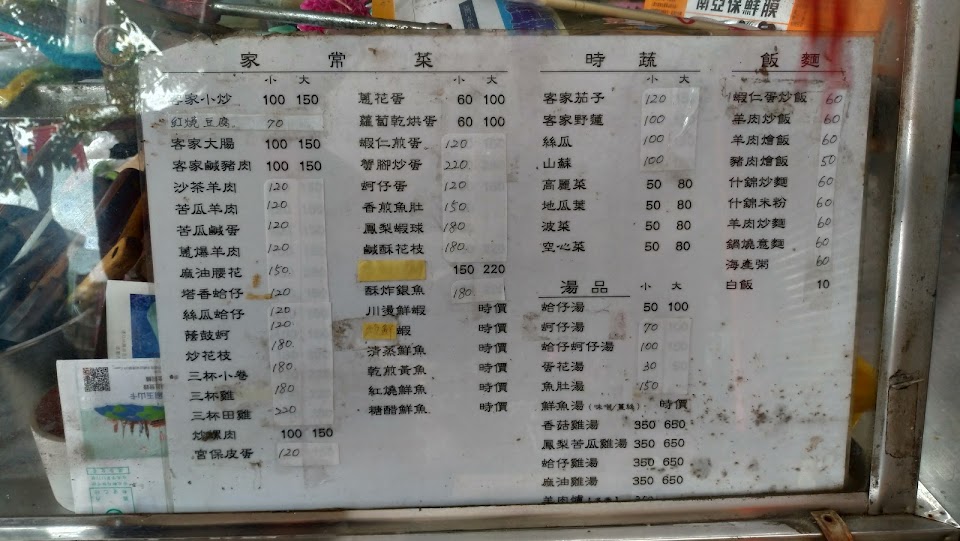 南亞保鮮膜
家常菜
小 大
客家小炒 100 150
紅燒豆腐 70
客家大腸 100 150
客家鹹豬肉 100 150
沙茶羊肉 120
苦瓜羊肉 120
苦瓜鹹蛋 120
蔥爆羊肉 120
麻油腰花 150
塔香蛤仔 120
絲瓜蛤仔 120
蔭鼓蚵 120
炒花枝 180
三杯小卷 180
三杯雞 180
三杯田雞 220
炒螺肉 100 150
宮保皮蛋 120
小 大
蔥花蛋 60 100
蘿蔔乾烘蛋 60 100
蝦仁煎蛋 120
蟹腳炒蛋 220
蚵仔蛋 120
香煎魚肚 150
鳳梨蝦球 180
鹹酥花枝 180
150 220
酥炸銀魚 180
川燙鮮蝦 時價
蝦 時價
清蒸鮮魚 時價
乾煎黃魚 時價
紅燒鮮魚 時價
糖醋鮮魚 時價
時蔬
小 大
客家茄子 120
客家野蓮 100
絲瓜 100
山蘇 100
高麗菜 50 80
地瓜葉 50 80
菠菜 50 80
空心菜 50 80
湯品
小 大
蛤仔湯 50 100
蚵仔湯 70
蛤仔蚵仔湯 100
蛋花湯 30
魚肚湯 150
鮮魚湯(味噌/薑絲) 時價
香菇雞湯 350 650
鳳梨苦瓜雞湯 350 650
蛤仔雞湯 350 650
麻油雞湯 350 650
羊肉爐
飯麵
蝦仁蛋炒飯 60
羊肉炒飯 60
羊肉燴飯 60
豬肉燴飯 50
什錦炒麵 60
什錦米粉 60
羊肉炒麵 60
鍋燒意麵 60
海產粥 60
白飯 10